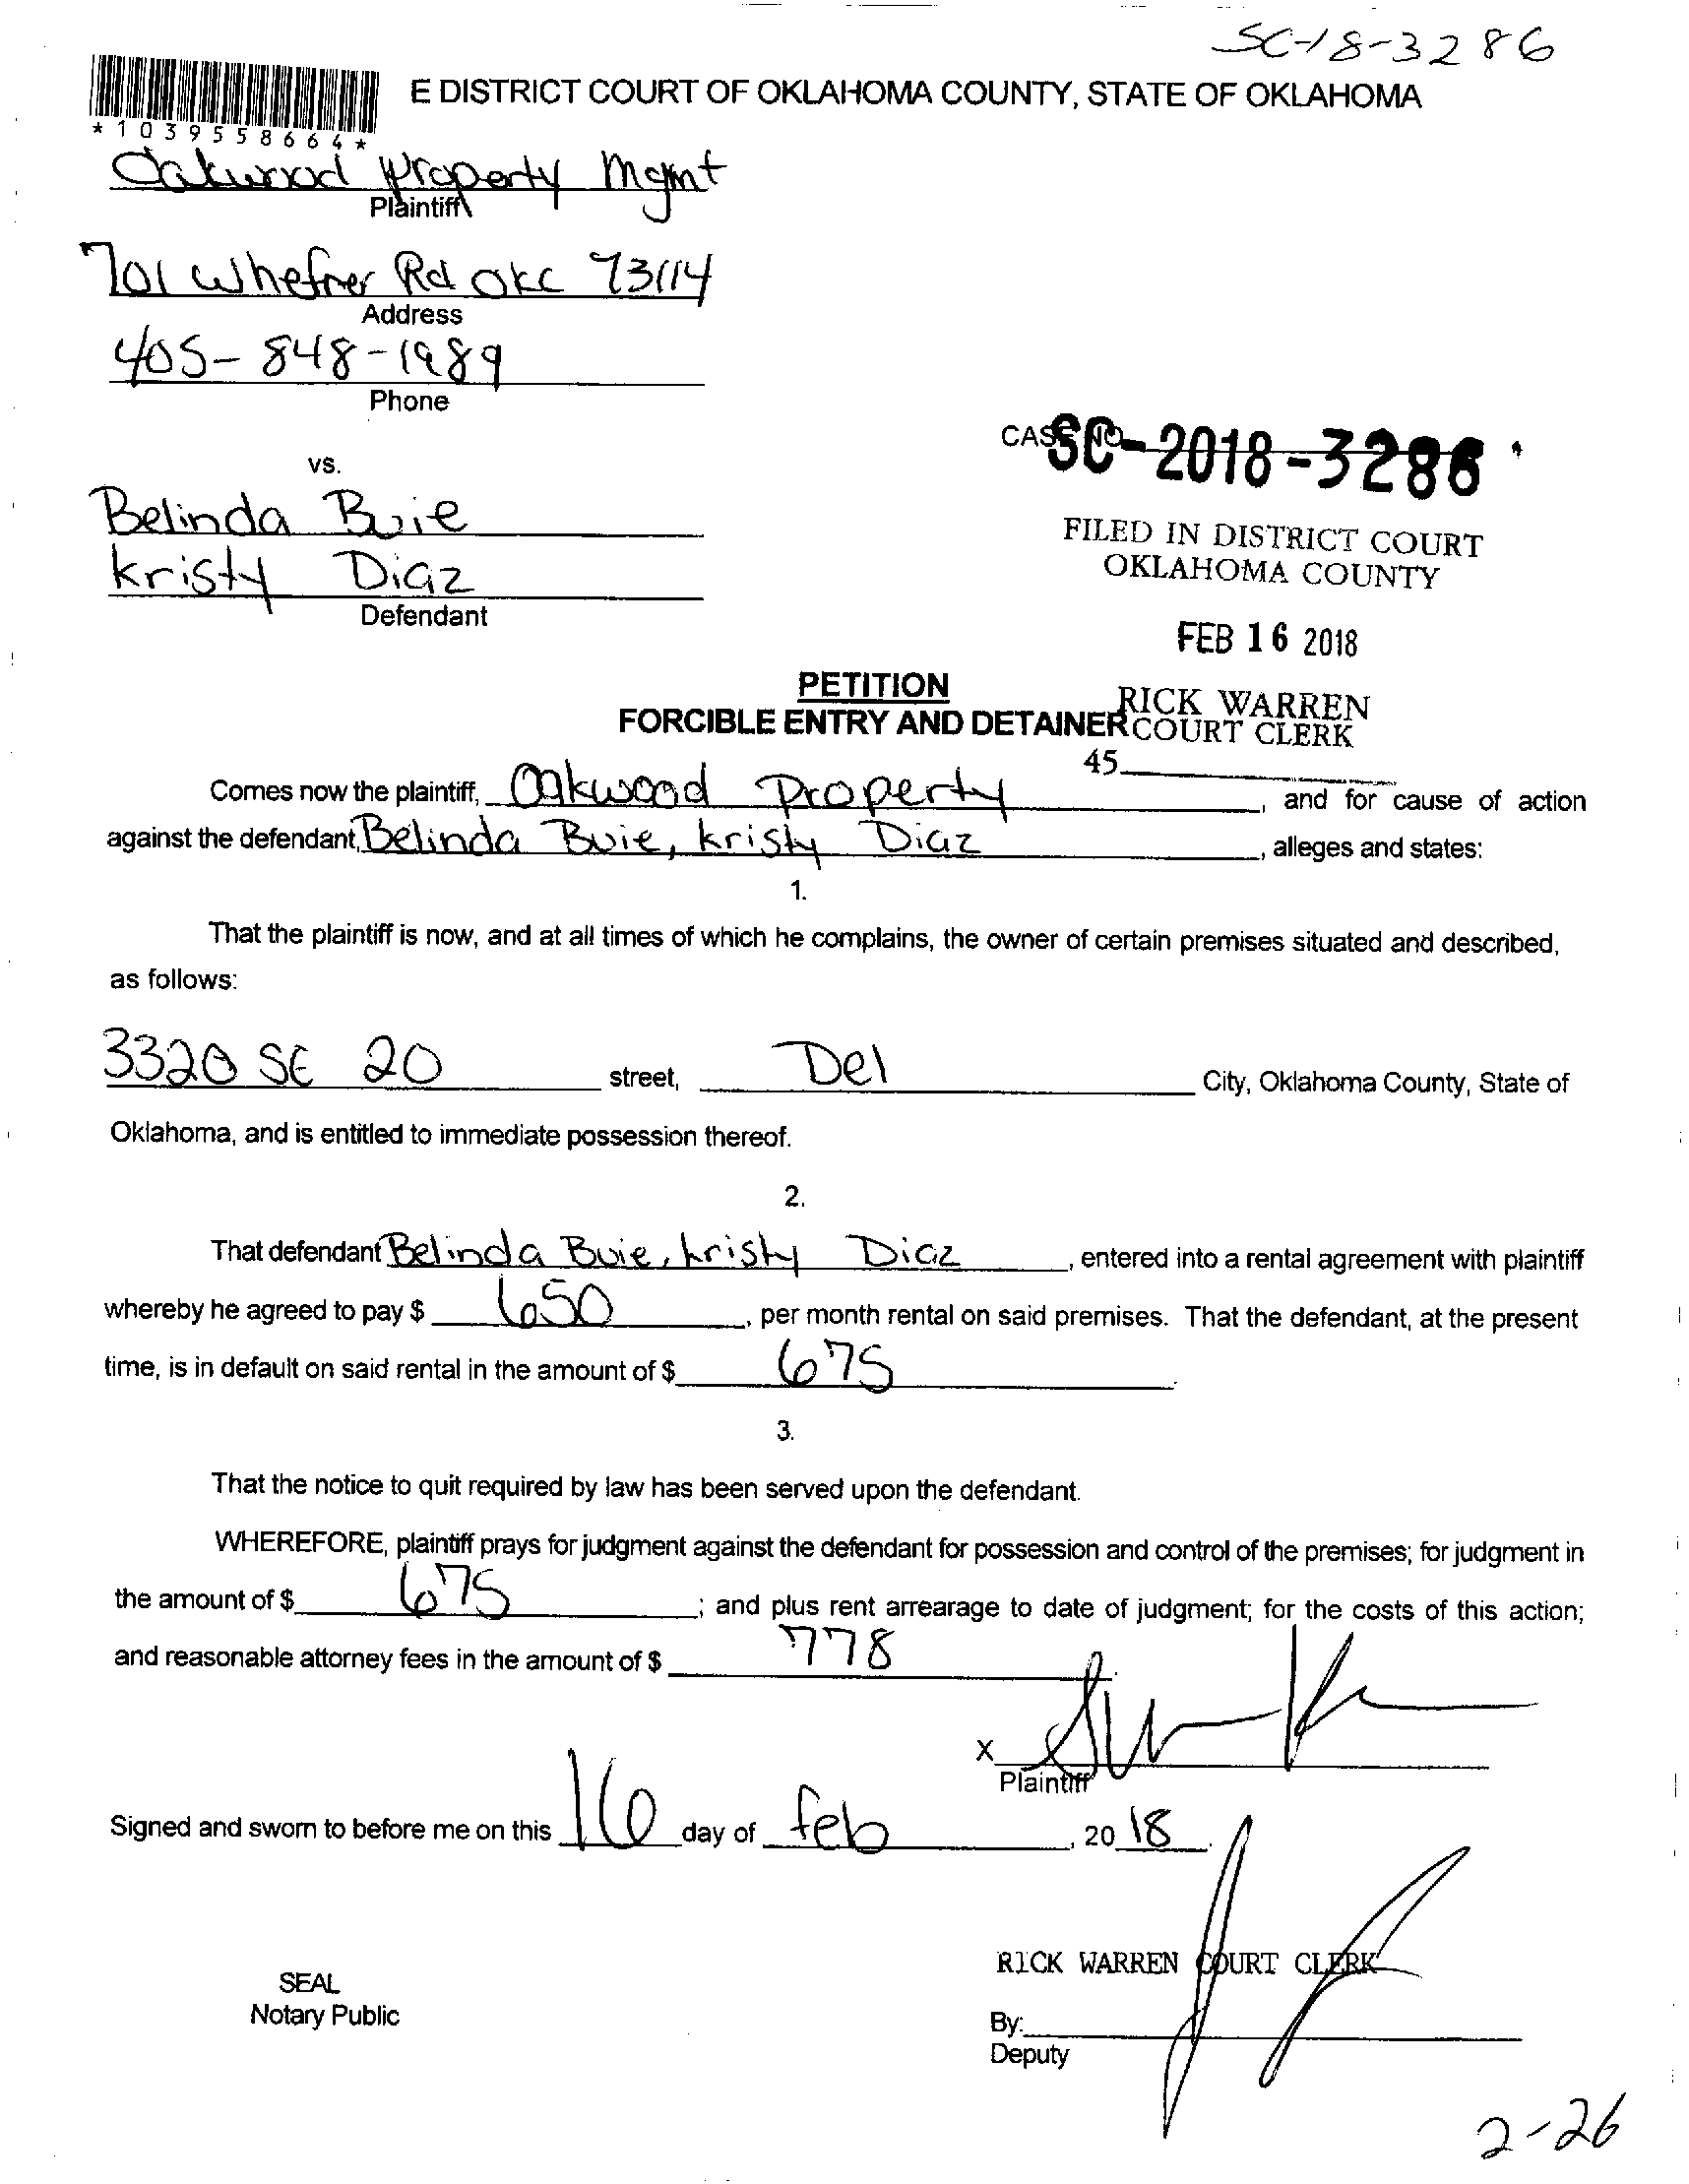 SC-18-3286
E DISTRICT COURT OF OKLAHOMA COUNTY, STATE OF OKLAHOMA
*1039558664*
Oakwood Property Mgmt
Plaintiff
701 Whefner Rd OKC 73114
Address
405-848-1989
Phone
CASE NO. SC-2018-3286
vs.
Belinda Buie
Kristy Diaz
Defendant
FILED IN DISTRICT COURT
OKLAHOMA COUNTY
FEB 16 2018
RICK WARREN
COURT CLERK
45
PETITION
FORCIBLE ENTRY AND DETAINER
Comes now the plaintiff, Oakwood Property, and for cause of action
against the defendant, Belinda Buie, Kristy Diaz, alleges and states:
1.
That the plaintiff is now, and at all times of which he complains, the owner of certain premises situated and described,
as follows:
3320 SE 20 street, Del City, Oklahoma County, State of
Oklahoma, and is entitled to immediate possession thereof.
2.
That defendant Belinda Buie, Kristy Diaz, entered into a rental agreement with plaintiff
whereby he agreed to pay $ 650, per month rental on said premises. That the defendant, at the present
time, is in default on said rental in the amount of $ 675
3.
That the notice to quit required by law has been served upon the defendant.
WHEREFORE, plaintiff prays for judgment against the defendant for possession and control of the premises; for judgment in
the amount of $ 675; and plus rent arrearage to date of judgment; for the costs of this action;
and reasonable attorney fees in the amount of $ 778
X
Plaintiff
Signed and sworn to before me on this 16 day of feb, 20 18.
RICK WARREN COURT CLERK
SEAL
Notary Public
By:
Deputy
2-26